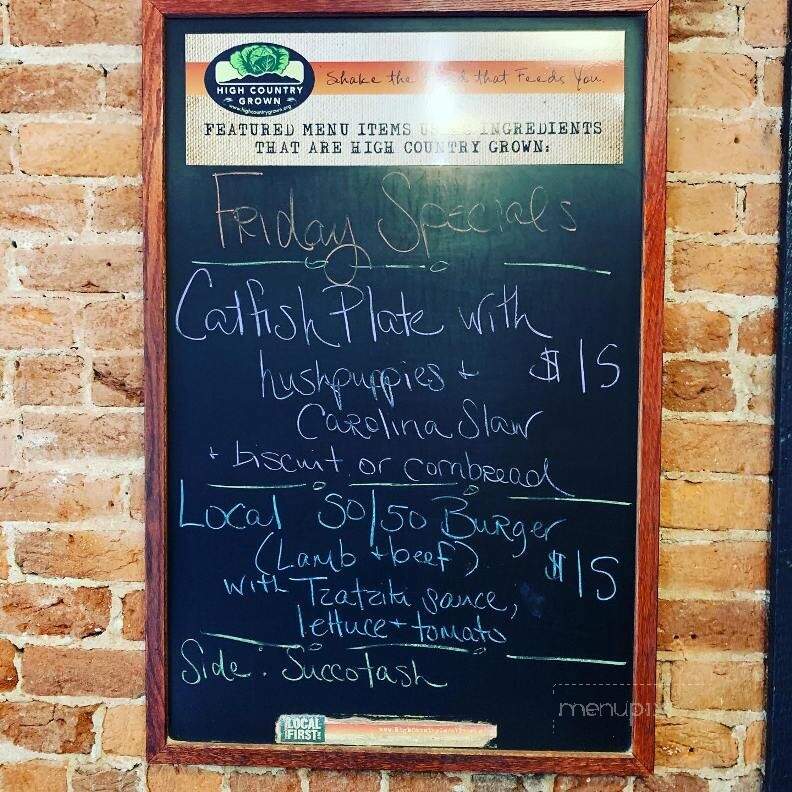 HIGH COUNTRY
GROWN
www.highcountrygrown.org
Shake the that Feeds You.
FEATURED MENU ITEMS INGREDIENTS
THAT ARE HIGH COUNTRY GROWN:
Friday Specials
Catfish Plate with
hushpuppies + $15
Carolina Slaw
+ biscuit or cornbread
Local 50/50 Burger
(Lamb + beef) $15
with Tzatziki sauce,
lettuce + tomato
Side: Succotash
LOCAL
FIRST
menupix